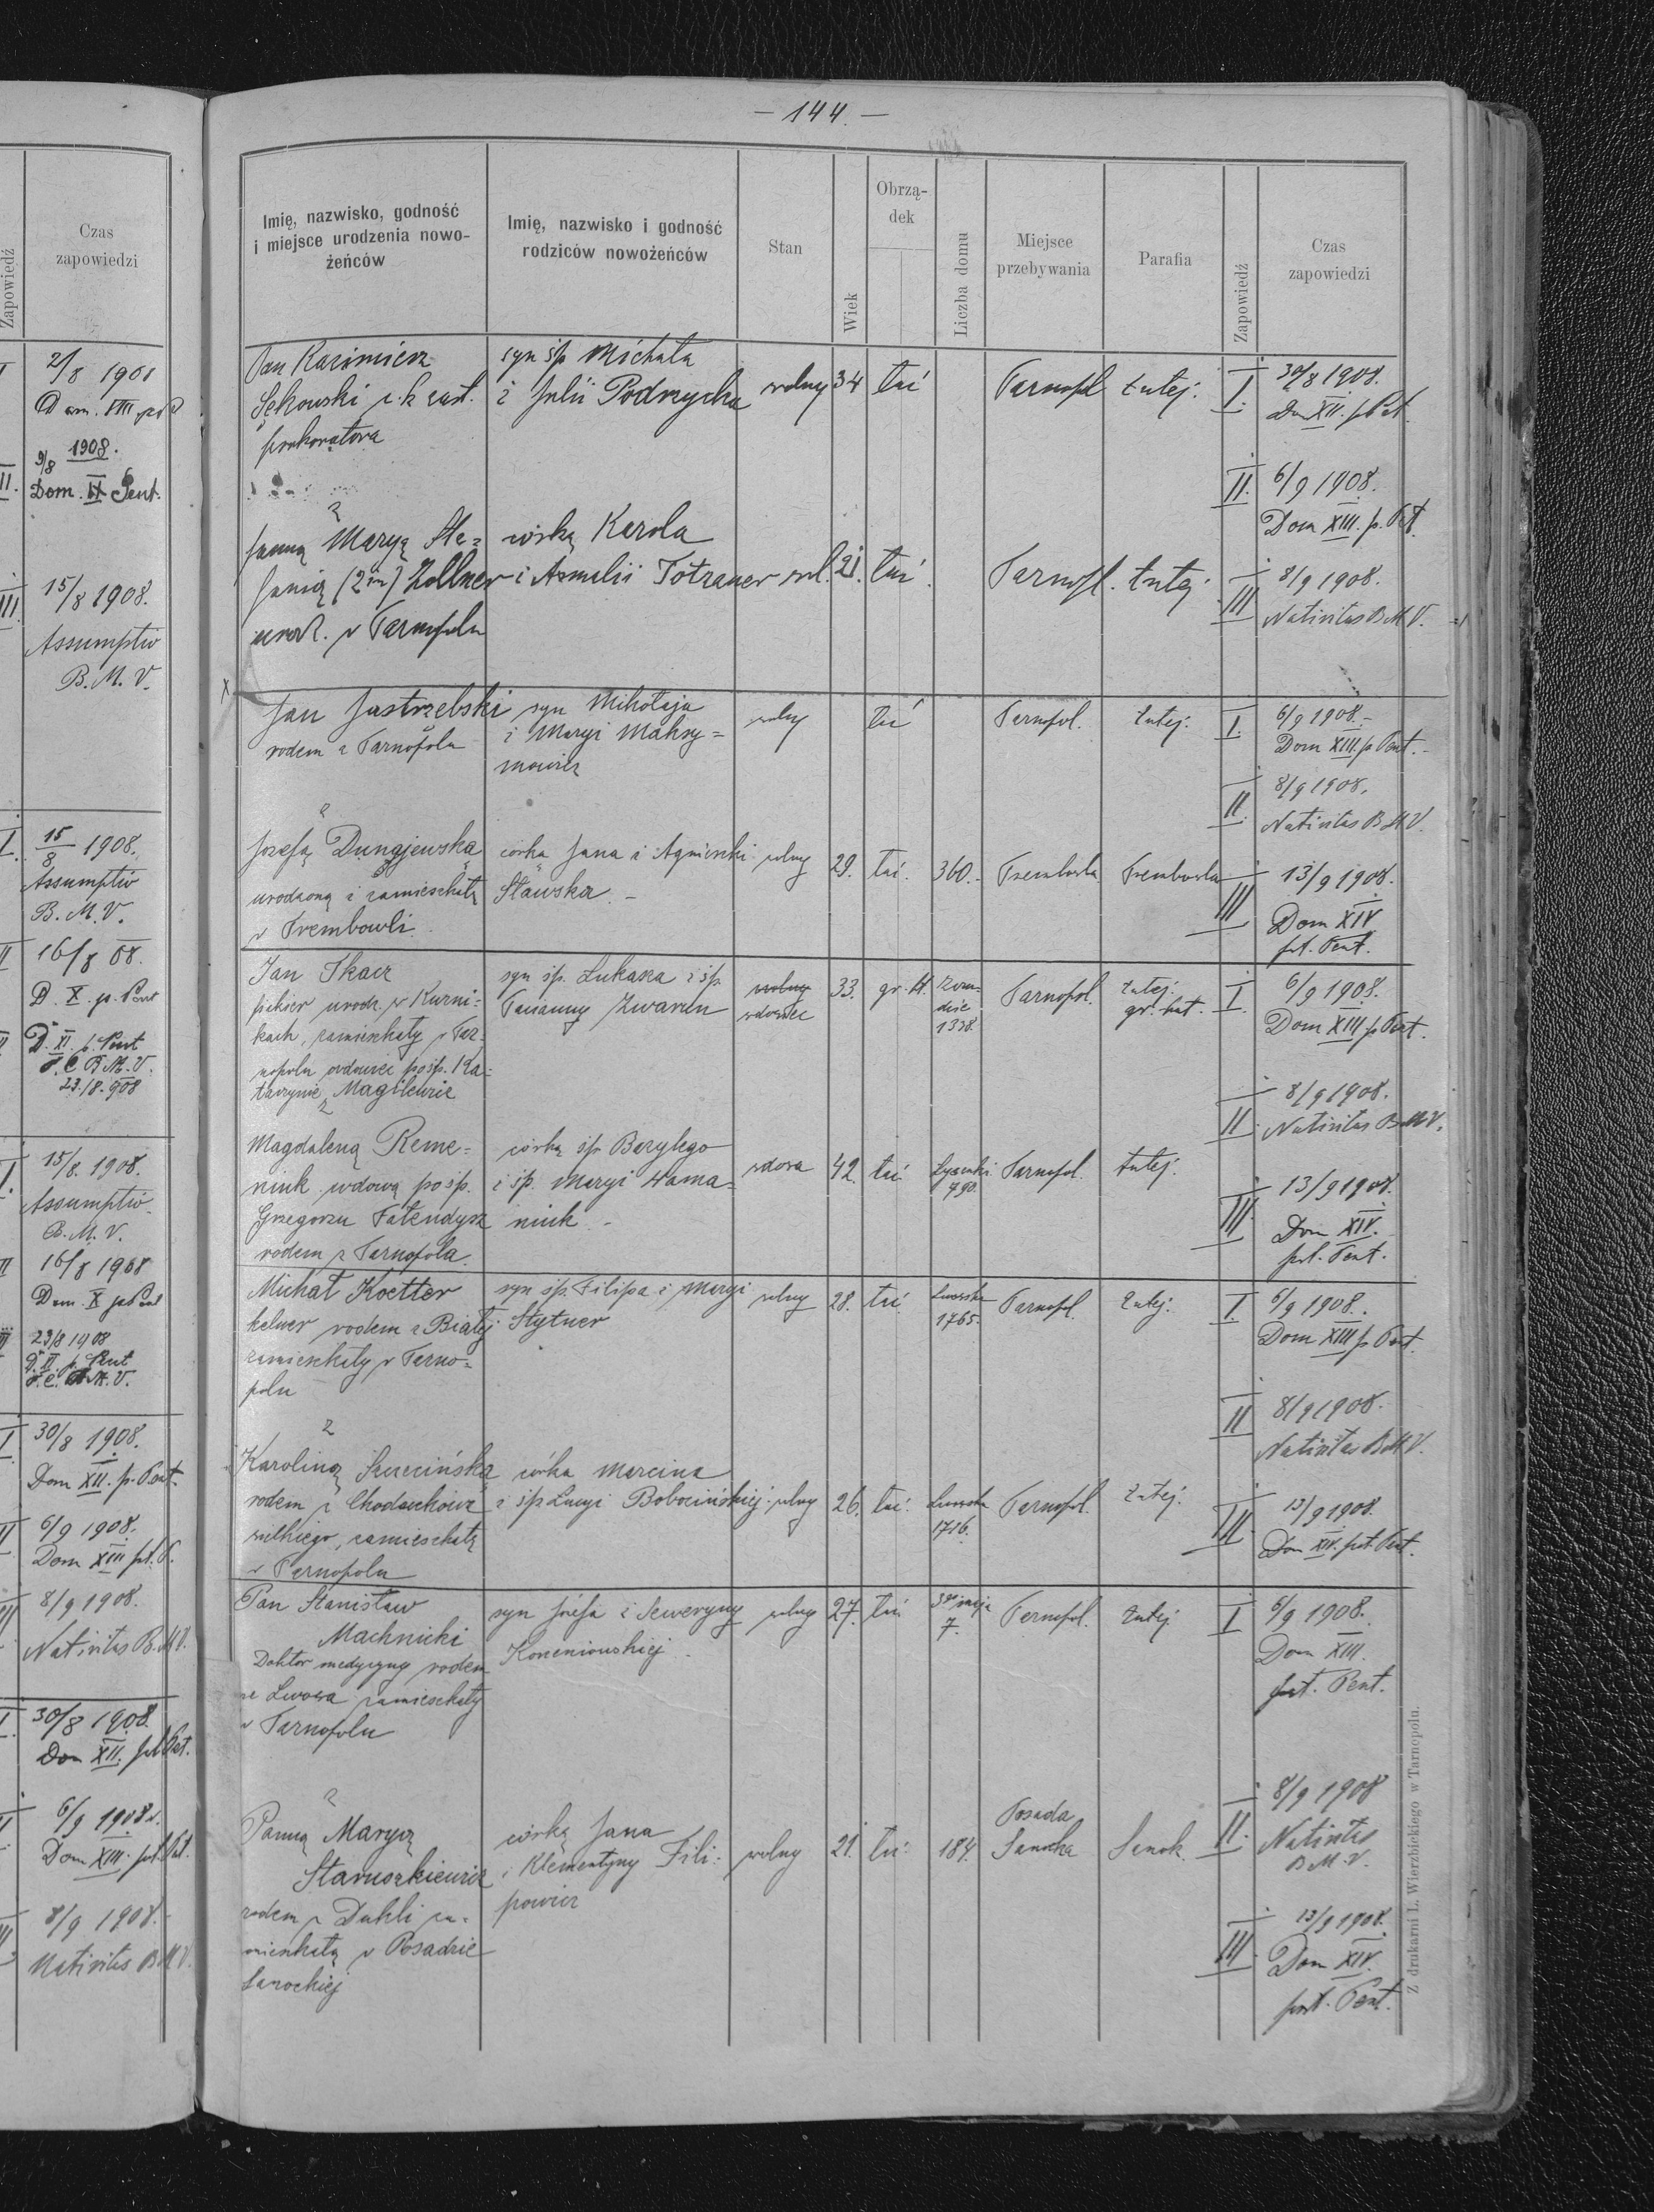 Zapowiedź
Czas
zapowiedzi
I
2/8 1908
Dom. VIII p. P
II.
9/8 1908.
Dom. IX Pent.
III.
15/8 1908.
Assumptio
B. M. V.
I.
15/8 1908.
Assumptio
B. M. V.
II
16/8 08.
D. X. p. Pent
D. XI. p. Pent
B. M. V.
23./8. 908
I.
15/8. 1908.
Assumptio
B. M. V.
II
16/8 1908
Dom. X p Pent
III
23/8 1908
D. XI. p. Pent
I.
30/8 1908.
Dom XII. p. Pent.
II
6/9 1908.
Dom XIII pt. P.
III
8/9 1908.
Nativitas B. M V.
I.
30/8 1908.
Dom XII.
II
6/9 1908.
Dom XIII.
III
8/9 1908.
Nativitas B M V.
— 144. —
Imię, nazwisko, godność
i miejsce urodzenia nowo-
żeńców
Imię, nazwisko i godność
rodziców nowożeńców
Stan
Wiek
Obrzą-
dek
Liczba domu
Miejsce
przebywania
Parafia
Zapowiedź
Czas
zapowiedzi
Jan Kazimierz
Sękowski c. k zast.
prokuratora
syn śp Michała
i Julii Podrzycka
wolny 34 łać Tarnopol tutej. I.
30/8 1908.
Dom XII. p Pent.
II. 6/9 1908.
Dom XIII. p. Pt.
z
Panną Maryą Ste=
fanią (2im) Zollner
urodz. w Tarnopolu
córką Karola
i Aemalii Totzauer
wol. 21. łać. Tarnopl. tutej. III
8/9 1908.
Nativitas B M V.
X
Jan Jastrzebski
rodem z Tarnopola
syn Mikołaja
i Maryi Maksy=
mowicz
wolny łać Tarnopol. tutej. I.
6/9 1908.-
Dom XIII. p Pent.-
II. 8/9 1908.
Nativitas B M V.
z
Józefą Dunajewską
urodzoną i zamieszkałą
w Trembowli.
córka Jana i Agnieszki
Sławska. -
wolny 29. łać. 360. Trembowla Trembowla
III
13/9 1908.
Dom XIV
pt. Pent.
Jan Tkacz
piekarz urodz. w Kurni=
kach, zamieszkały w Tar-
nopolu wdowiec pośp. Ka=
tarzynie Magilewie
syn śp. Łukasza i śp.
Tacianny Zwarun
wolny
wdowiec
33. gr. kt. 1338. Tarnopol. tutej.
gr. kat. I.
6/9 1908.
Dom XIII p Pent.
II. 8/9 1908.
Nativitas B M V.
z
Magdaleną Reme=
niuk wdową pośp.
Grzegorzu Fatendysz
rodem z Tarnopola.
córką śp Bazylego
i śp. Maryi Hama=
niuk -
wdowa 42. łać. 790. Tarnopol. tutej.
III.
13/9 1908.
Dom XIV.
pt. Pent.
Michał Koetter
kelner rodem z Białej
zamieszkały w Tarno=
polu
syn śp. Filipa i Maryi
Stytner
wolny 28. łać Lwowska
1765. Tarnopol. tutej. I
6/9 1908.
Dom XIII p Pent.
II
8/9 1908.
Nativitas B M V.
z
Karoliną Szczecińską
rodem z Chodaczkowa
wielkiego, zamieszkałą
w Tarnopolu
córka Marcina
i śp Łucyi Bobocińskiej
wolny 26. łać. Lwowska
1716. Tarnopol. tutej.
III.
13/9 1908.
Dom XIV. pt. Pent.
Pan Stanisław
Machnicki
Doktor medycyny rodem
ze Lwowa zamieszkały
w Tarnopolu
syn Józefa i Seweryny
Korzeniowskiej.
wolny 27. łać 3go maja
7. Tarnopol. tutej. I
6/9 1908.
Dom XIII.
pt. Pent.
II. 8/9 1908
Nativitas
B M V.
z
Panną Maryą
Staruszkiewicz
rodem z Dukli za=
mieszkałą w Posadzie
Sanockiej
córką Jana
i Klementyny Fili=
powicz
wolny 21. łać. 184. Posada
Sanocka Sanok.
III.
13/9 1908.
Dom XIV.
post. Pent.
Z drukarni L. Wierzbickiego w Tarnopolu.